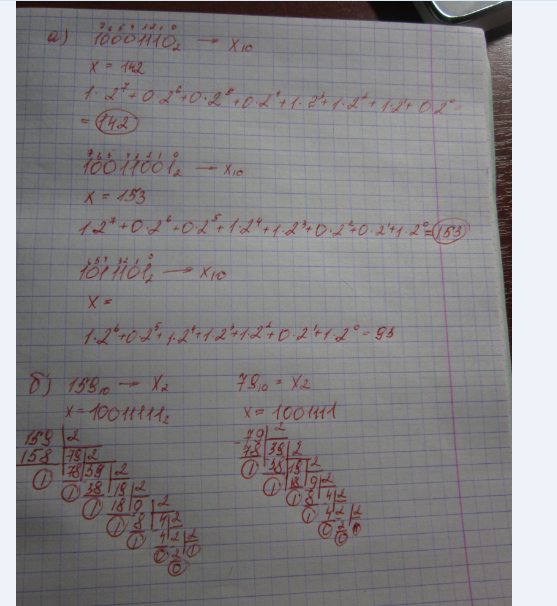 а) 7 6 5 4 3 2 1 0
10001110₂ → X₁₀
x = 142
1·2⁷+0·2⁶+0·2⁵+0·2⁴+1·2³+1·2²+1·2¹+0·2⁰=
= 142
7 6 5 4 3 2 1 0
10011001₂ → X₁₀
x = 153
1·2⁷+0·2⁶+0·2⁵+1·2⁴+1·2³+0·2²+0·2¹+1·2⁰=153
6 5 4 3 2 1 0
1011101₂ → X₁₀
x =
1·2⁶+0·2⁵+1·2⁴+1·2³+1·2²+0·2¹+1·2⁰=93
б) 159₁₀ → X₂
x=10011111₂
159 2
158 79 2
1 78 39 2
1 38 19 2
1 18 9 2
1 8 4 2
1 4 2 2
0 2 1
0
79₁₀ = X₂
x=1001111
79 2
78 39 2
1 38 19 2
1 18 9 2
1 8 4 2
1 4 2 2
0 2
0